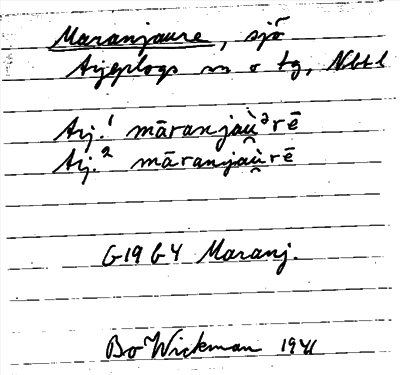 Maranjaure, sjö
Arjeplogs sn o tg, Nbtl
Arj.¹ māranjaù̯ᵊrē
Arj.² māranjaù̯rē
G1964 Maranj.
Bo Wickman 1941